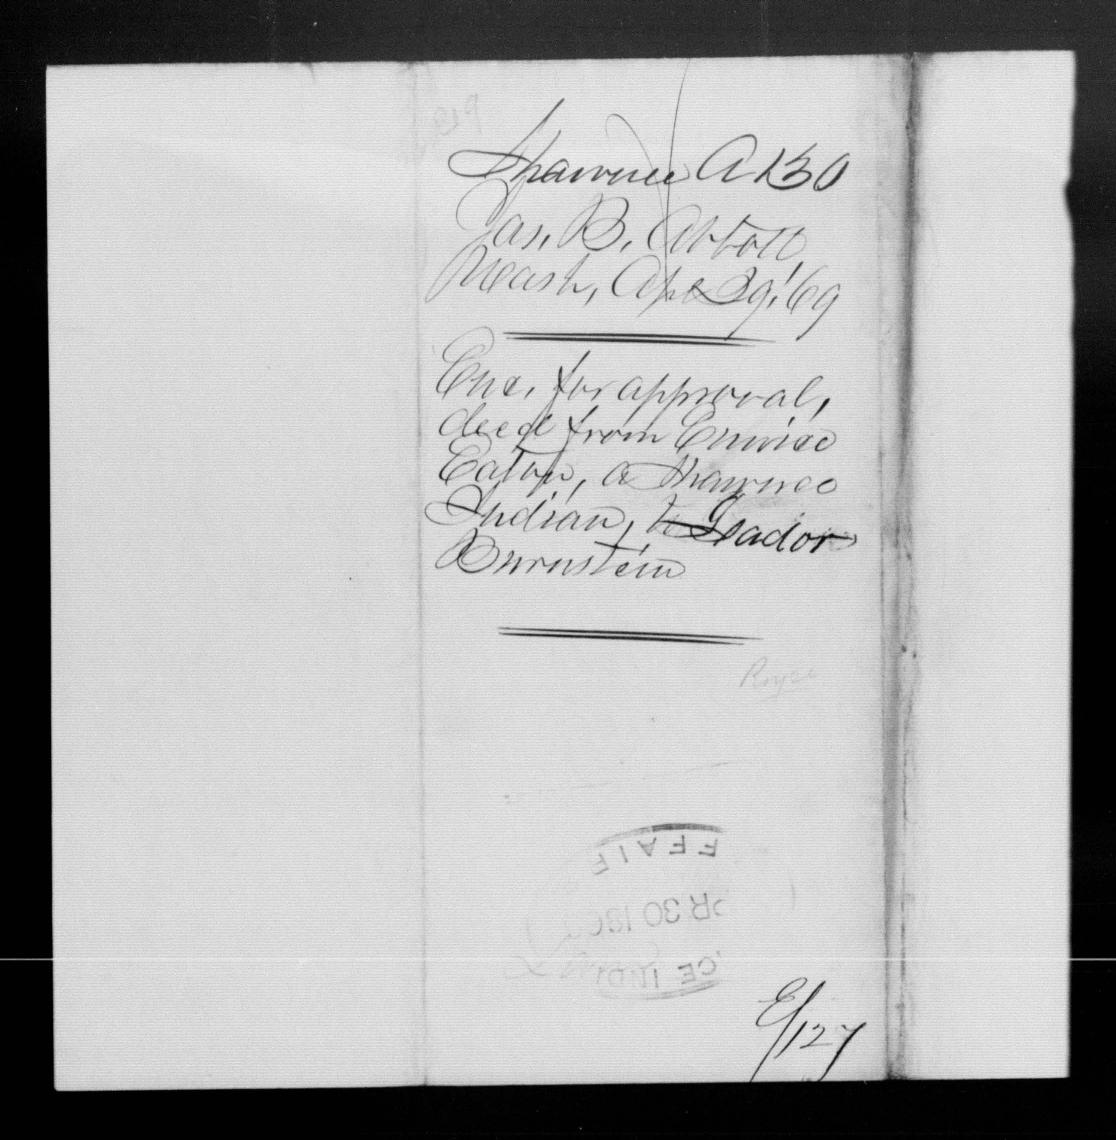 Shawnee A 130
Jas. B. Abbott,
Wash, Apl 29,' 69
Enc. for approval,
deed from
Eaton, a Shawnee
Indian, to Isador
Burnstein
Royce
FFAIR
PR 30 18
CE INDI
E/127